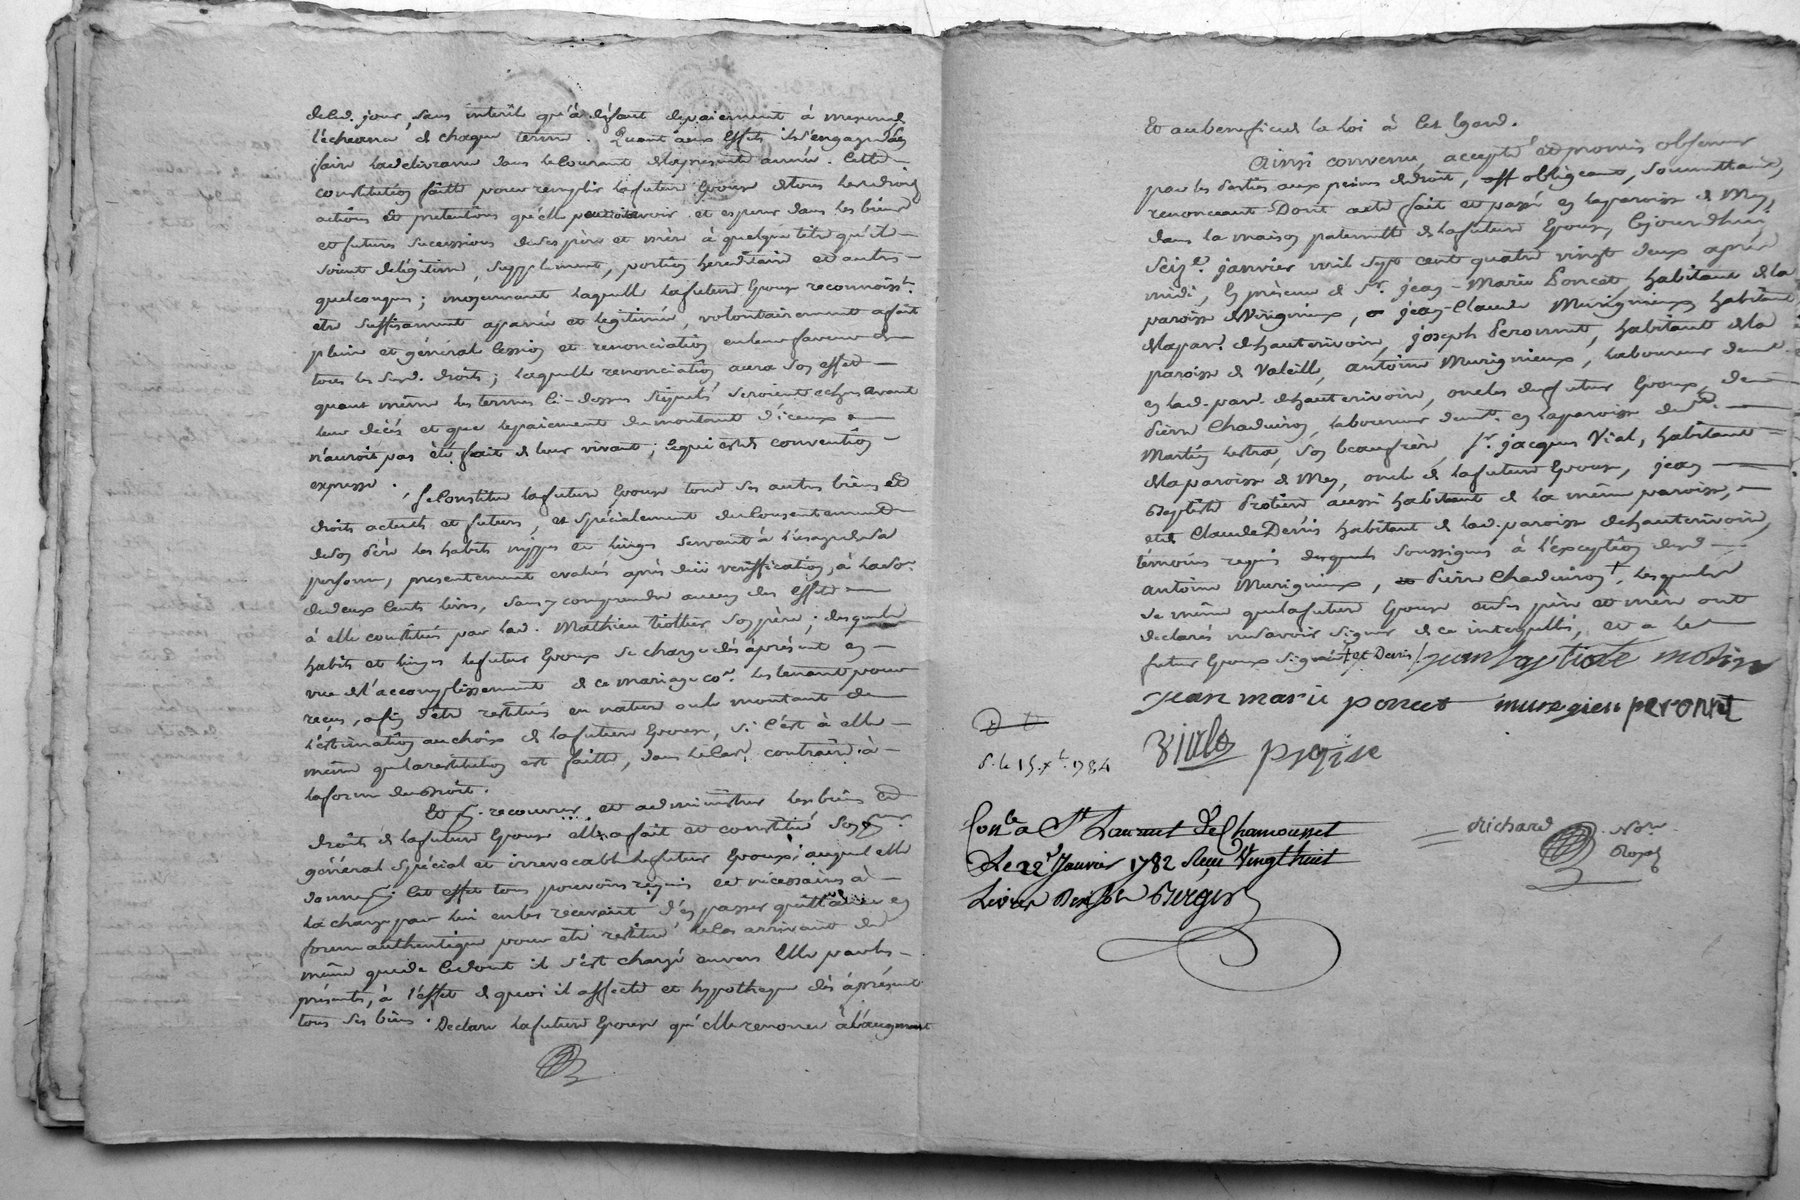 delad. jour, sans interêt qu'à défaut depaiement à mesure de
l'echeance de chaque terme. Quant aux Effets ils s'engagent d'en
faire la delivrance dans le courant de la presente année. Cette
constitution faitte pour remplir la future Epouse de tous les droits
actions et pretentions qu'elle peut avoir et esperer dans les biens
et futures sucessions de ses père et mère à quelque titre qu'ils
soient de légitime, supplement, portion hereditaire et autres
quelconques; moyennant laquelle la future Epouse reconnoisst.
etre suffisament apanée et legitimée, volontairement a fait
pleine et général Cession et renonciation en leur faveur de
tous les susd. droits; laquelle renonciation aura son effet
quant même les termes Ci-dessus stipulés seroient echus avant
leur décés et que le paiement du montant d'iceux
n'auroit pas été fait de leur vivant; ce qui est de convention
expresse. Se Constitue la future Epouse tous ses autres biens et
droits actuels et futurs, et spécialement du Consentement
de son Père les habits nippes et linges servant à l'usage de sa
personne, presentement evalués après due verification, à la so.
de deux Cents livres, sans y comprendre aucun des effets
à elle constitués par led. Mathieu trollier son père; desquels
habits et linges le futur Epoux se charge dès àprésent en
vue de l'accomplissement de ce mariage co. les tenant pour
reçus, afin d'être restitués en nature ou le montant de
l'estimation au choix de la future Epouse, si C'est à elle
même que la restitution est faitte, dans le Cas contraire à
la forme du droit.
Et p. recouvrer et administrer les biens et
droits de la future Epouse elle a fait et constitué son pr.
général spécial et irrevocable le futur Epoux; auquel elle
donne p. Cet effet tous pouvoirs requis et nécessaires à
la charge par lui en les recevant d'en passer quittance en
forme authentique pour être restitué le Cas arrivant de
même que de Ce dont il s'est chargé envers Elle par les
présentes, à l'effet de quoi il affecte et hypotheque dès àprésent
tous ses biens. Declare la future Epouse qu'elle renonce à l'augment
Et au benefice de la loi à Cet Egard.
Ainsi convenu, accepté et promis observer
par les Parties aux peines de droit, obligeant, soumettant,
renonceant Dont acte fait et passé en la paroisse de Mey,
dans la maison paternelle de la future Epouse, Cejourdhui
seize. janvier mil sept cent quatre vingt deux après
midi, En présence de Sr. jean-Marie Poncet, habitant de la
paroisse de Virigneux, jean-Claude Murigneux habitant
de la par. de hauterivoire, joseph Peronnet, habitant de la
paroisse de Valeille, antoine Murigneux, laboureur demt.
en lad. par. de hauterivoire, oncles du futur Epoux, de
Pierre Chaduiron, laboureur demt. en la paroisse de St.
Martin lestra, son beaufrère, Sr. jacques Vial, habitant
de la paroisse de Mey, oncle de la future Epouse, jean
Baptiste Protiere aussi habitant de la même paroisse,
et de Claude Denis habitant de lad. paroisse de hauterivoire,
témoins requis desquels soussignés à l'exception dud.
antoine Murigneux, Pierre Chaduiron +, lesquels
de même que la future Epouse et ses père et mère ont
declarés ne savoir signer de ce interpellés, et a le
futur Epoux signé / + et Denis / jean baptiste molin
Jean marie poncet murigneu peronnet
Vial
S. le 15. Xbr. 1784
Conle. a St. Laurent de Chamousset
Le 22e Janvier 1782 Reçu Vingt huit
Livres
Richard Nore.
Royal